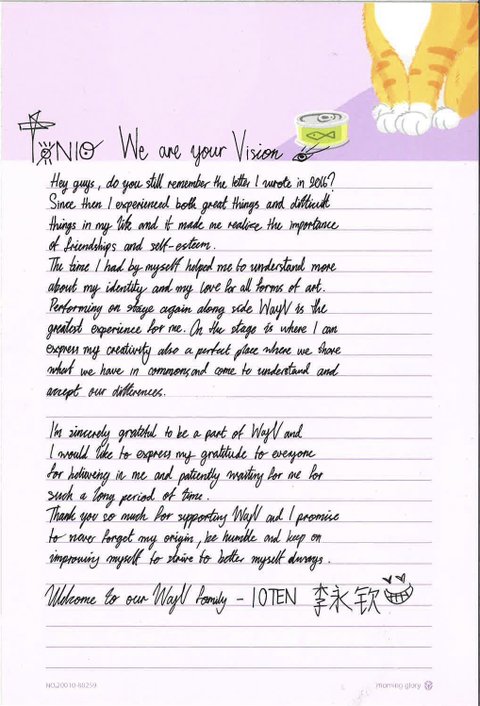 TONIO We are your Vision
Hey guys, do you still remember the letter I wrote in 2016?
Since then I experienced both great things and difficult
things in my life and it made me realize the importance
of friendships and self-esteem.
The time I had by myself helped me to understand more
about my identity and my love for all forms of art.
Performing on stage again along side WayV is the
greatest experience for me. On the stage is where I can
express my creativity also a perfect place where we share
what we have in common and come to understand and
accept our differences.
I'm sincerely grateful to be a part of WayV and
I would like to express my gratitude to everyone
for believing in me and patiently waiting for me for
such a long period of time.
Thank you so much for supporting WayV and I promise
to never forget my origin, be humble and keep on
improving myself to strive to better myself always.
Welcome to our WayV family - 10TEN 李永钦
NO.20010-80259
morning glory